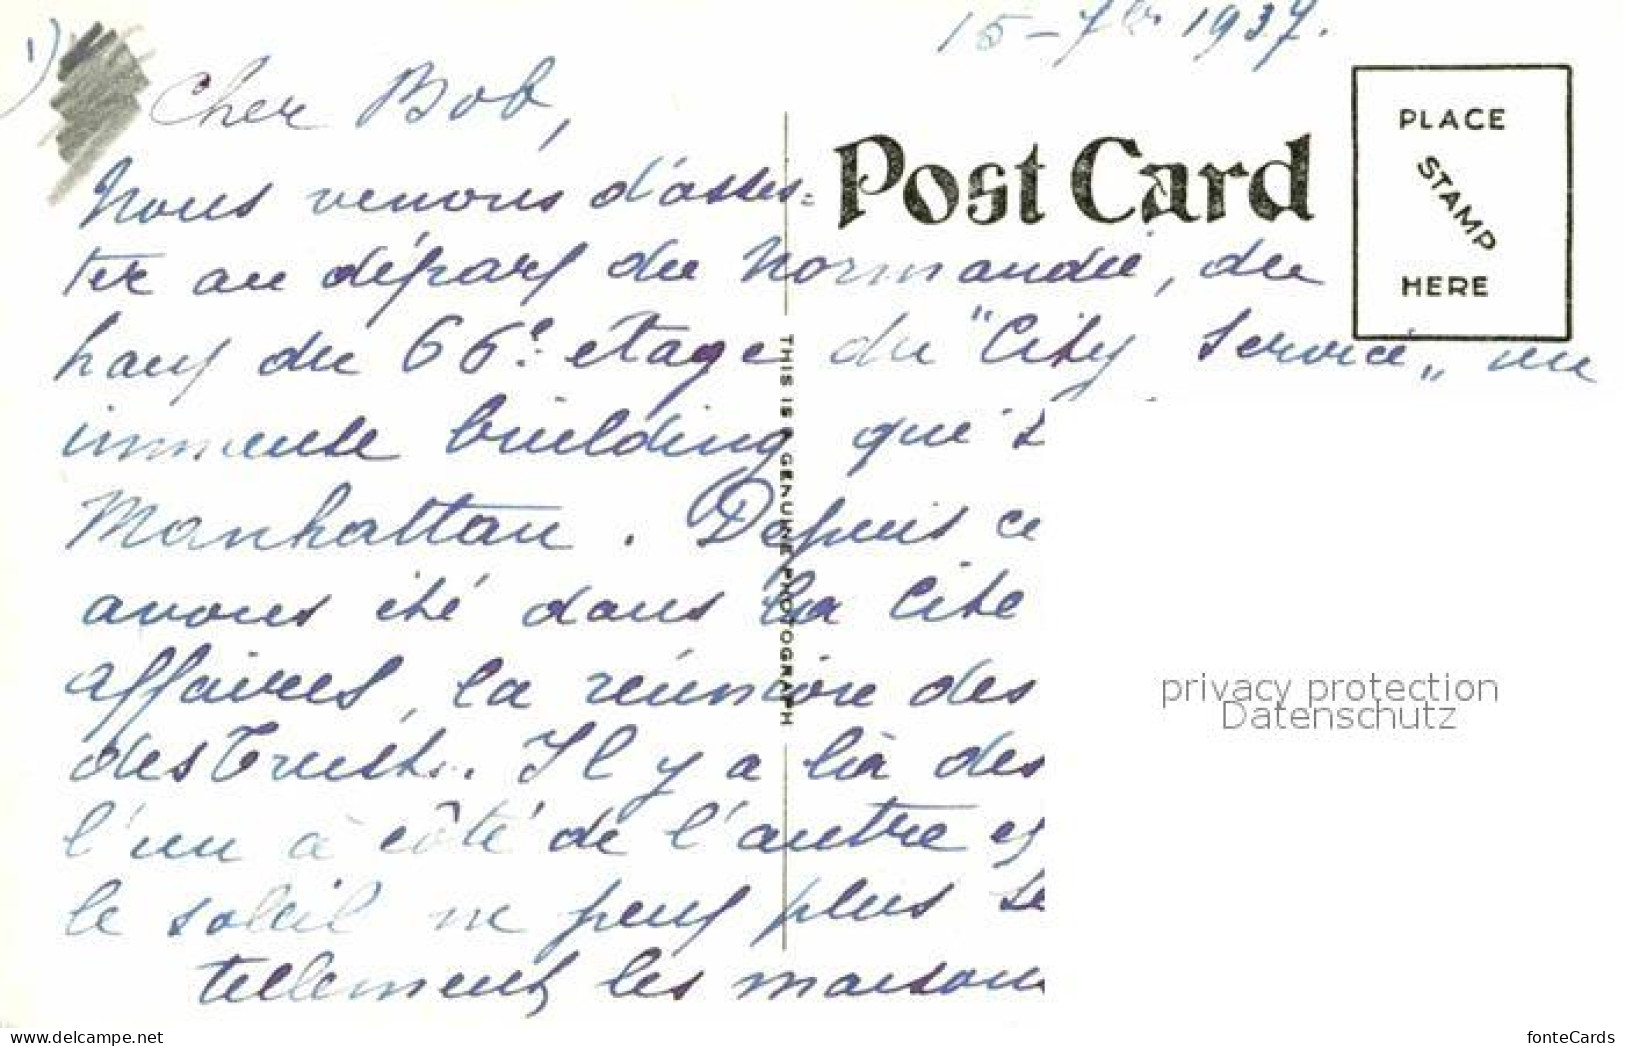 1)
15-7bre 1937.
Cher Bob,
Post Card
PLACE
STAMP
HERE
Nous venons d'assis=
ter au départ du Normandie, du
haut du 66e etage du "City Service„ un
immense building qui
Manhattan. Depuis ce
avons été dans la Cite
affaires, la réunion des
des Trust... Il y a là des
l'un à côté de l'autre et
le soleil ne peut plus se
tellement les maisons
THIS IS A GENUINE PHOTOGRAPH
privacy protection
Datenschutz
delcampe.net
fonteCards